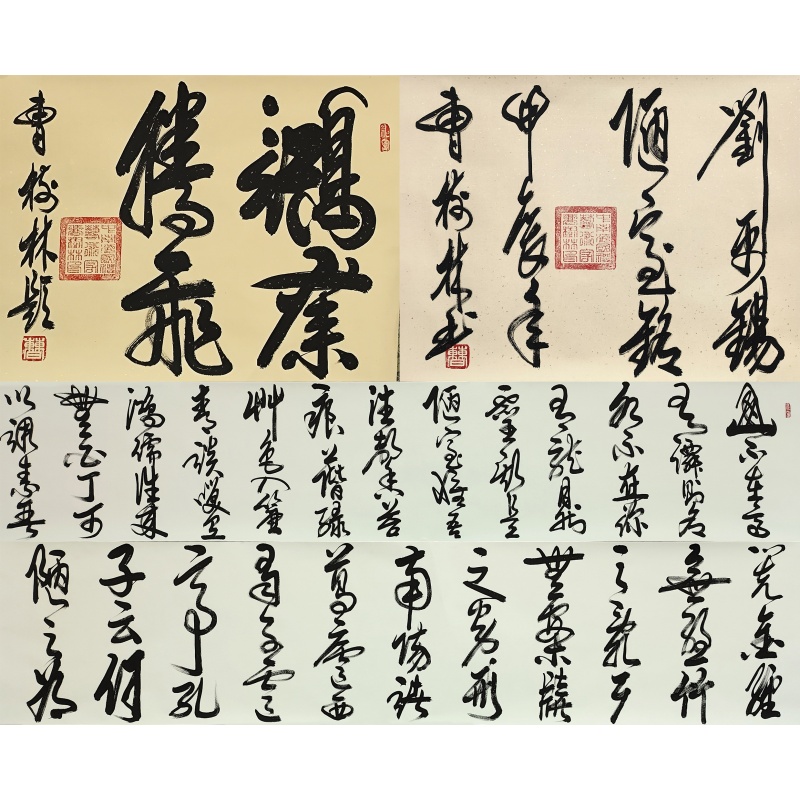 業
騰飛
曹樹林題
劉禹錫
陋室銘
甲辰年
曹樹林書
山不在高
有僊則名
水不在深
有龍則
靈斯是
陋室惟吾
德馨苔
痕上階綠
艸色入簾
青談笑有
鴻儒往來
無白丁可
以調素琴
閱金經
無絲竹
之亂耳
無案牘
之勞形
南陽諸
葛廬西
蜀子雲
亭孔
子云何
陋之有